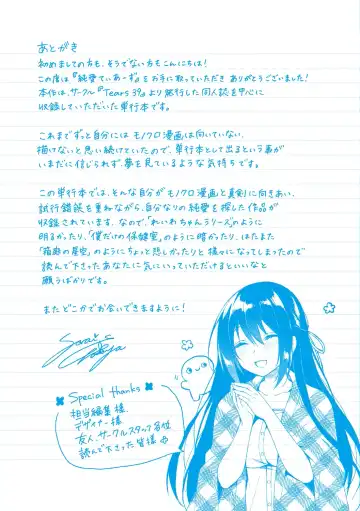 あとがき
初めましての方も、そうでない方もこんにちは!
この度は『純愛てぃあーず』をお手に取っていただき ありがとうございました!
本作は、サークル『Tears 39』より発行した同人誌を中心に
収録していただいた単行本です。
これまでずっと自分には モノクロ漫画は向いていない、
描けないと思い続けていたので、単行本として出るという事が
いまだに信じられず、夢を見ているような気持ちです。
この単行本では、そんな自分がモノクロ漫画と真剣に向きあい、
試行錯誤を重ねながら、自分なりの純愛を探した作品が
収録されています。なので、『れいわちゃんシリーズ』のように
明るかったり、『僕だけの保健室』のように暗かったり、はたまた
『箱庭の星空』のようにちょっと悲しかったりと様々になってしまったので
読んで下さったあなたに気にいっていただけるといいなと
願うばかりです。
またどこかでお会いできますように!
Special thanks
担当編集様
デザイナー様
友人、サークルスタッフ各位
読んで下さった皆様